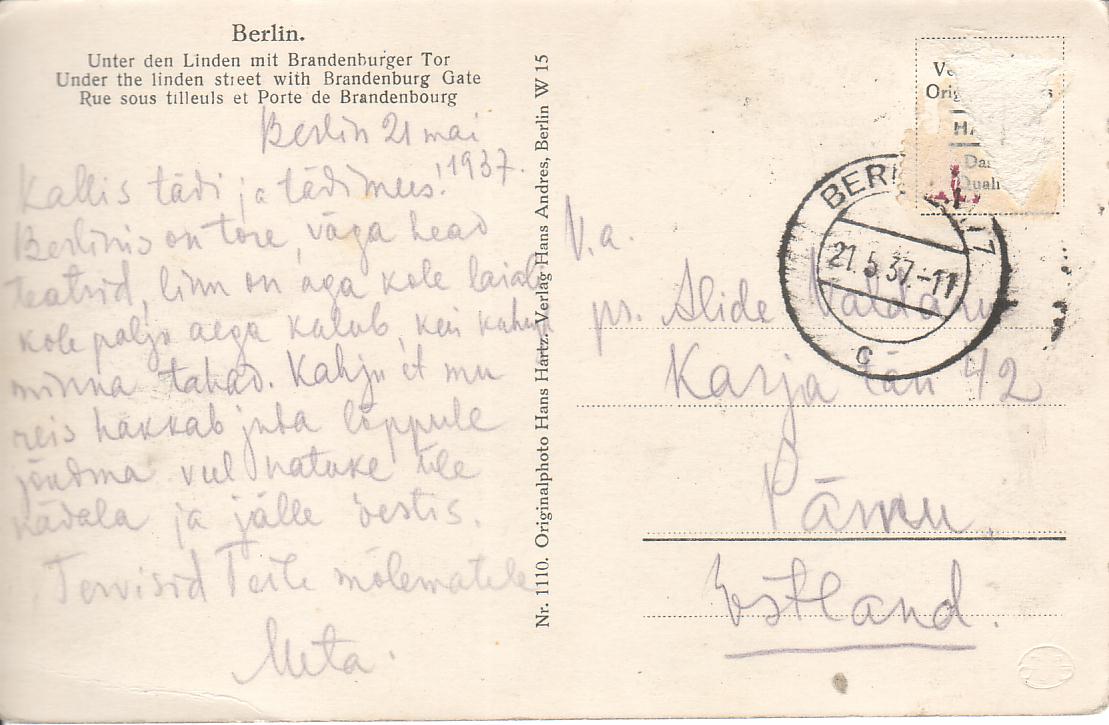 Berlin.
Unter den Linden mit Brandenburger Tor
Under the linden street with Brandenburg Gate
Rue sous tilleuls et Porte de Brandenbourg
Berlin 21 mai
1937.
Kallis tädi ja tädimees!
Berliinis on tore, väga head
teatrid, linn on aga kole laiali
kole palju aega kulub, kui kuhugi
minna tahad. Kahju et mu
reis hakkab juba lõppule
jõudma veel natuke üle
nädala ja jälle Eestis.
Tervisid Teile mõlematele
Meta.
Nr. 1110. Originalphoto Hans Hartz. Verlag Hans Andres, Berlin W 15
V. a.
pr. Alide
Karja tän 42
Pärnu,
Estland.
21.5.37.-11
c